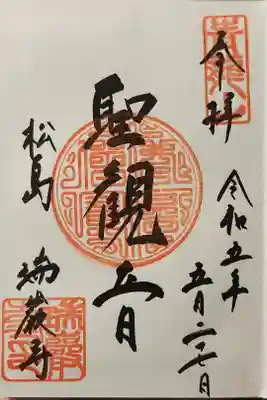 奉拝
令和五年
五月二七日
聖観音
松島
瑞巌寺